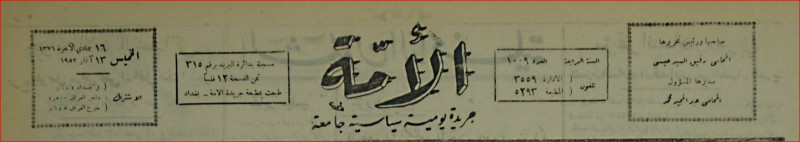 صاحبها ورئيس تحريرها
المحامي رفيق السيد عيسى
مديرها المسؤول
المحامي عبد المجيد محمد
السنة الرابعة العدد ١٠٠٩
تلفون
الادارة ٣٥٥٩
المطبعة ٥٢٩٣
الأمّة
جريدة يومية سياسية جامعة
مسجلة بدائرة البريد برقم ٣١٥
ثمن النسخة ١٢ فلسا
طبعت بمطبعة جريدة الامة - بغداد
الخميس
١٦ جمادي الآخرة ١٣٧١
١٣ آذار ١٩٥٢
الاشتراك
داخل العراق
خارج العراق